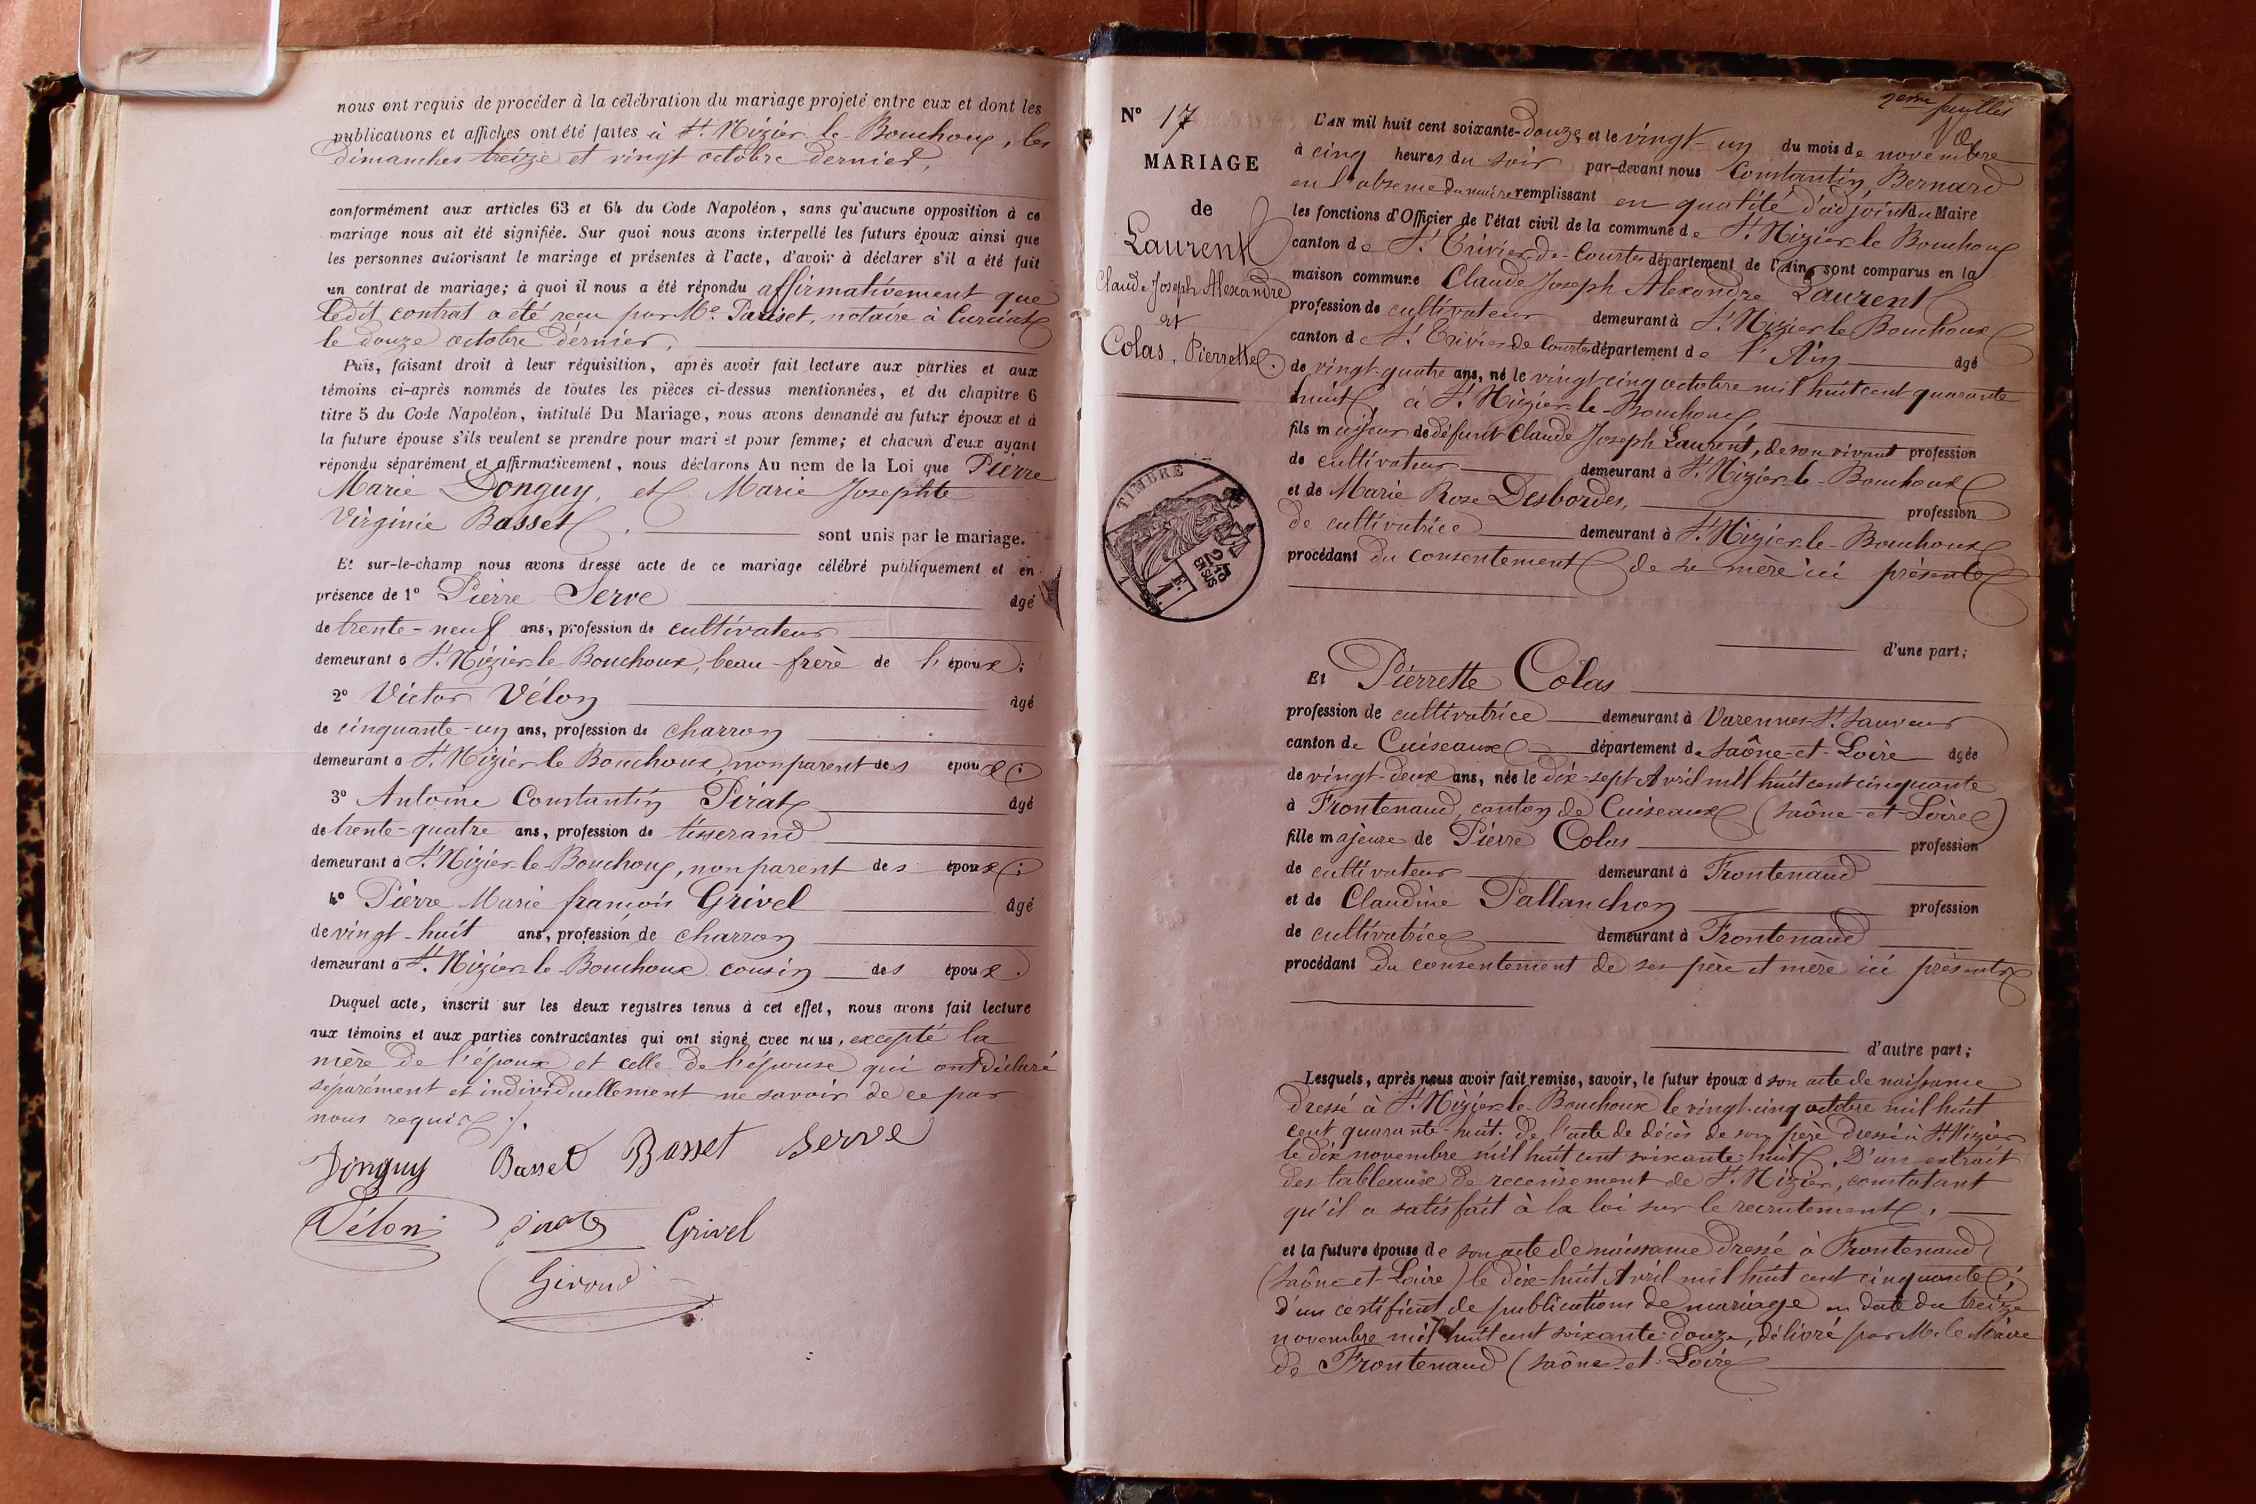 nous ont requis de procéder à la célébration du mariage projeté entre eux et dont les
publications et affiches ont été faites à St Nizier le Bouchoux, les
dimanches treize et vingt octobre dernier,
conformément aux articles 63 et 64 du Code Napoléon, sans qu'aucune opposition à ce
mariage nous ait été signifiée. Sur quoi nous avons interpellé les futurs époux ainsi que
les personnes autorisant le mariage et présentes à l'acte, d'avoir à déclarer s'il a été fait
un contrat de mariage; à quoi il nous a été répondu affirmativement que
ledit contrat a été reçu par Me Pariset, notaire à Curciat
le douze octobre dernier.
Puis, faisant droit à leur réquisition, après avoir fait lecture aux parties et aux
témoins ci-après nommés de toutes les pièces ci-dessus mentionnées, et du chapitre 6
titre 5 du Code Napoléon, intitulé Du Mariage, nous avons demandé au futur époux et à
la future épouse s'ils veulent se prendre pour mari et pour femme; et chacun d'eux ayant
répondu séparément et affirmativement, nous déclarons Au nom de la Loi que Pierre
Marie Donguy, et Marie Josephte
Virginie Basset. sont unis par le mariage.
Et sur-le-champ nous avons dressé acte de ce mariage célébré publiquement et en
présence de 1o Pierre Serve âgé
de trente-neuf ans, profession de cultivateur
demeurant à St Nizier le Bouchoux, beau-frère de l'époux;
2o Victor Vélon âgé
de cinquante-un ans, profession de charron
demeurant à St Nizier le Bouchoux, non parent des époux;
3o Antoine Constantin Pirat âgé
de trente-quatre ans, profession de tisserand
demeurant à St Nizier-le-Bouchoux, non parent des époux;
4o Pierre Marie françois Grivel âgé
de vingt-huit ans, profession de charron
demeurant à St Nizier le Bouchoux cousin des époux.
Duquel acte, inscrit sur les deux registres tenus à cet effet, nous avons fait lecture
aux témoins et aux parties contractantes qui ont signé avec nous, excepté la
mère de l'époux et celle de l'épouse qui ont déclaré
séparément et individuellement ne savoir de ce par
nous requis /.
Donguy Basset Basset Serve
Vélon Pirat Grivel
Giroud
2eme feuillet
No 17
MARIAGE
de
Laurent
Claude Joseph Alexandre
et
Colas, Pierrette.
TIMBRE
2/10
EN SUS
L'AN mil huit cent soixante-douze et le vingt-un du mois de novembre
à cinq heures du soir par-devant nous Constantin Bernard
en l'absence du maire remplissant en qualité d'adjoint du Maire
les fonctions d'Officier de l'état civil de la commune de St Nizier le Bouchoux
canton de St Trivier-de-Courtes département de l'Ain sont comparus en la
maison commune Claude Joseph Alexandre Laurent
profession de cultivateur demeurant à St Nizier le Bouchoux
canton de St Trivier de Courtes département de l'Ain âgé
de vingt-quatre ans, né le vingt-cinq octobre mil huit cent quarante
huit, à St Nizier-le-Bouchoux,
fils majeur de défunt Claude Joseph Laurent, de son vivant profession
de cultivateur demeurant à St Nizier-le-Bouchoux
et de Marie Rose Desbordes, profession
de cultivatrice demeurant à St Nizier-le-Bouchoux
procédant du consentement de sa mère ici présente
d'une part;
Et Pierrette Colas
profession de cultivatrice demeurant à Varennes-St Sauveur
canton de Cuiseaux département de Saône-et-Loire âgée
de vingt-deux ans, née le dix-sept Avril mil huit cent cinquante
à Frontenaud, canton de Cuiseaux (Saône-et-Loire)
fille majeure de Pierre Colas profession
de cultivateur demeurant à Frontenaud
et de Claudine Pallanchon profession
de cultivatrice demeurant à Frontenaud
procédant du consentement de ses père et mère ici présents
d'autre part;
Lesquels, après nous avoir fait remise, savoir, le futur époux d son acte de naissance
dressé à St Nizier-le-Bouchoux le vingt-cinq octobre mil huit
cent quarante-huit. de l'acte de décès de son père dressé à St Nizier
le dix novembre mil huit cent soixante-huit. D'un extrait
des tableaux de recensement de St Nizier, constatant
qu'il a satisfait à la loi sur le recrutement.
et la future épouse de son acte de naissance dressé à Frontenaud
(Saône-et-Loire) le dix-huit Avril mil huit cent cinquante;
d'un certificat de publications de mariage en date du treize
novembre mil huit cent soixante-douze, délivré par M. le Maire
de Frontenaud (Saône-et-Loire